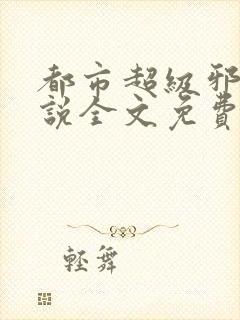 都市超級邪
説全文免費
輕舞